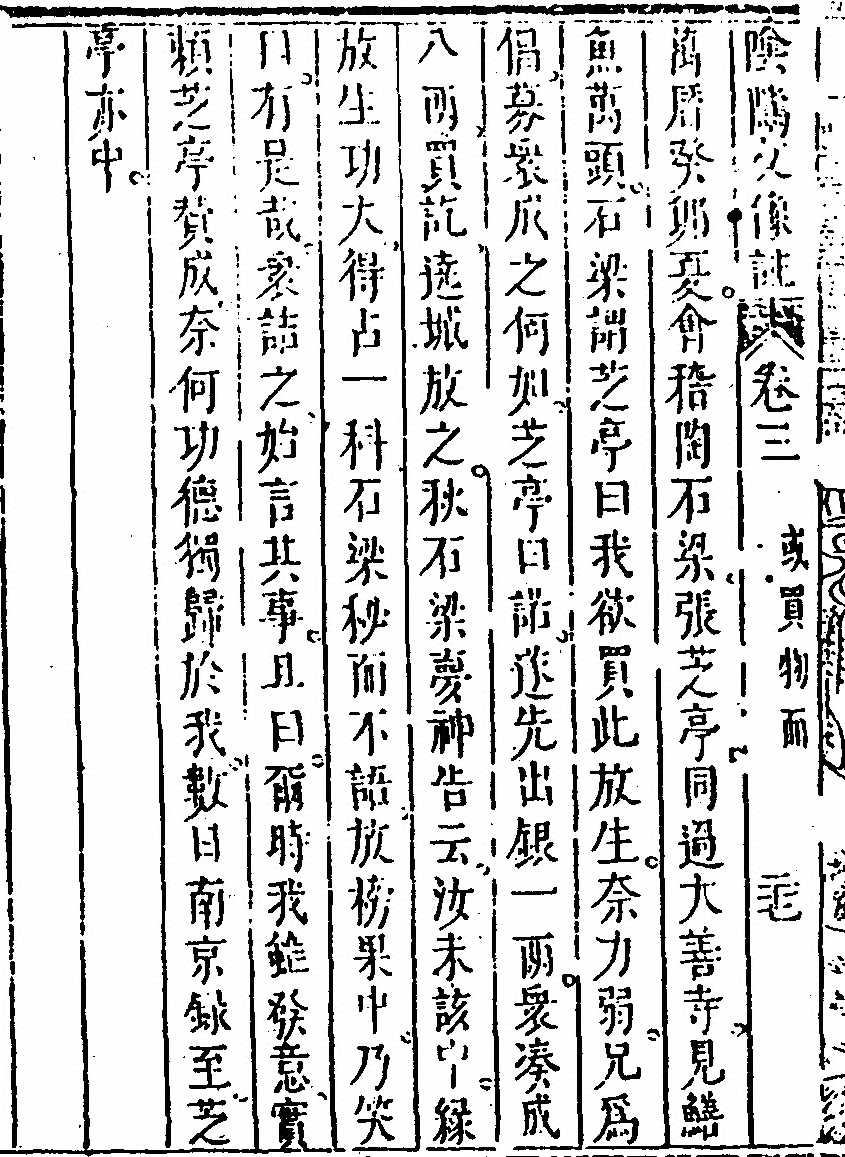 陰隲文像註 卷三 或買物而 毛
萬曆癸卯夏會稽陶石梁張芝亭同過大善寺見鱔
魚萬頭石梁謂芝亭曰我欲買此放生奈力弱兄爲
倡募衆成之何如芝亭曰諾遂先出銀一兩衆湊成
八兩買訖遶城放之秋石梁夢神告云汝未該中緣
放生功大得占一科石梁秘而不語放榜果中乃笑
曰有是哉衆詰之始言其事且曰爾時我雖發意實
賴芝亭贊成奈何功德獨歸於我數日南京錄至芝
亭亦中